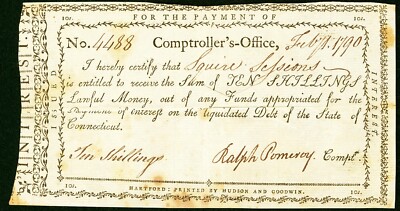 10s. FOR THE PAYMENT OF 10s.
No. 4488 Comptroller's-Office, Feby 1790
I hereby certify that Squire Sessions
is entitled to receive the Sum of TEN SHILLINGS
Lawful Money, out of any Funds appropriated for the
Payment of interest on the liquidated Debt of the State of
Connecticut.
Ten Shillings Ralph Pomeroy Compt.
10s. HARTFORD: PRINTED BY HUDSON AND GOODWIN. 10s.
ISSUED
INTEREST
INTEREST